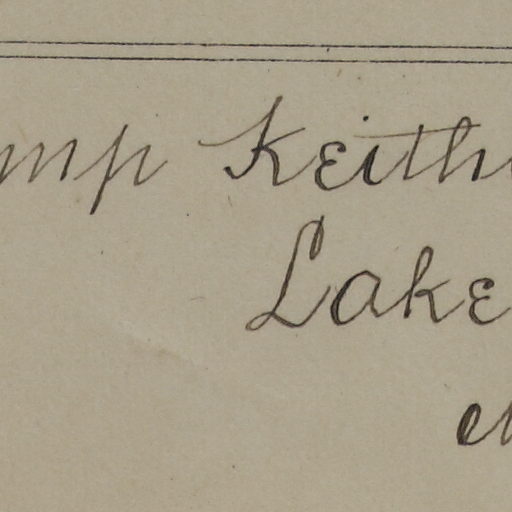 mp Keith
Lake